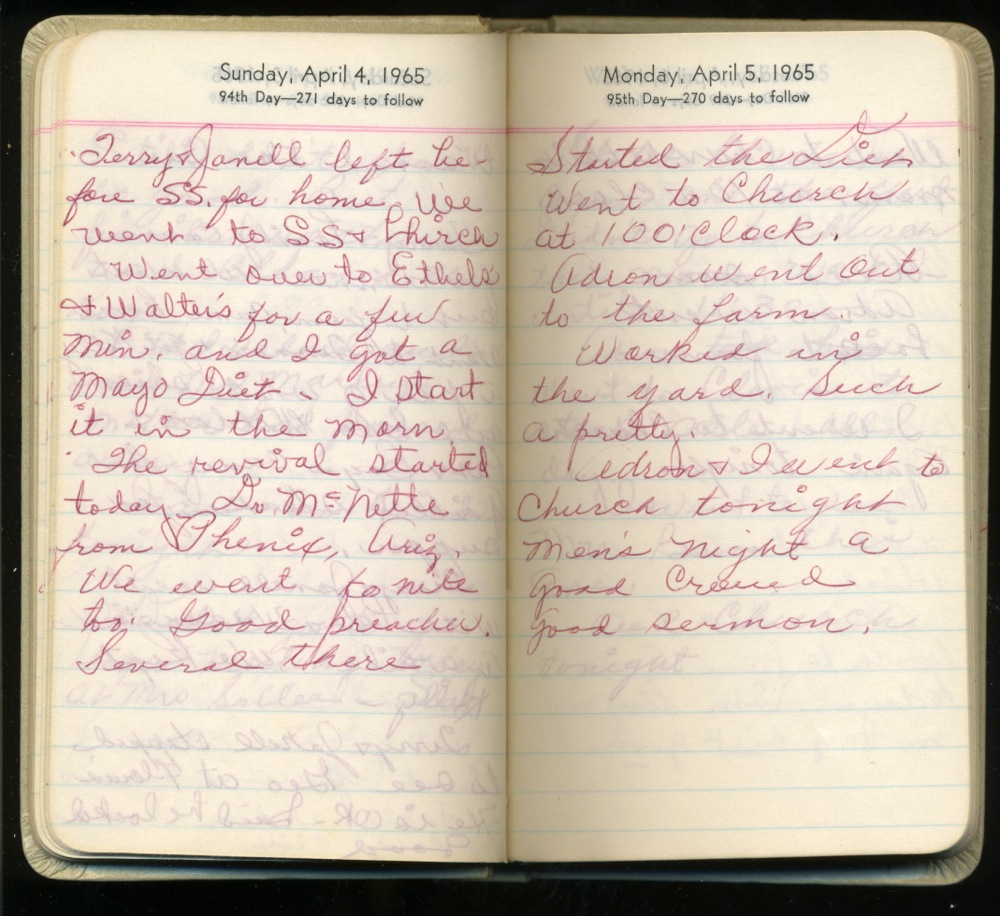 Sunday, April 4, 1965
94th Day—271 days to follow
Terry & Janell left be-
fore SS. for home. We
went to SS & Church
Went over to Ethels'
& Walter's for a few
min. and I got a
Mayo Diet - I start
it in the morn.
The revival started
today. Dr. McNette
from Phenix, Ariz.
We went tonite
too. Good preacher.
Several there
Monday, April 5, 1965
95th Day—270 days to follow
Started the Diet
Went to Church
at 10 O'Clock.
Adron went out
to the farm.
Worked in
the yard. Such
a pretty.
Adron & I went to
Church tonight
Men's night a
good Crowd
good sermon.
tonight